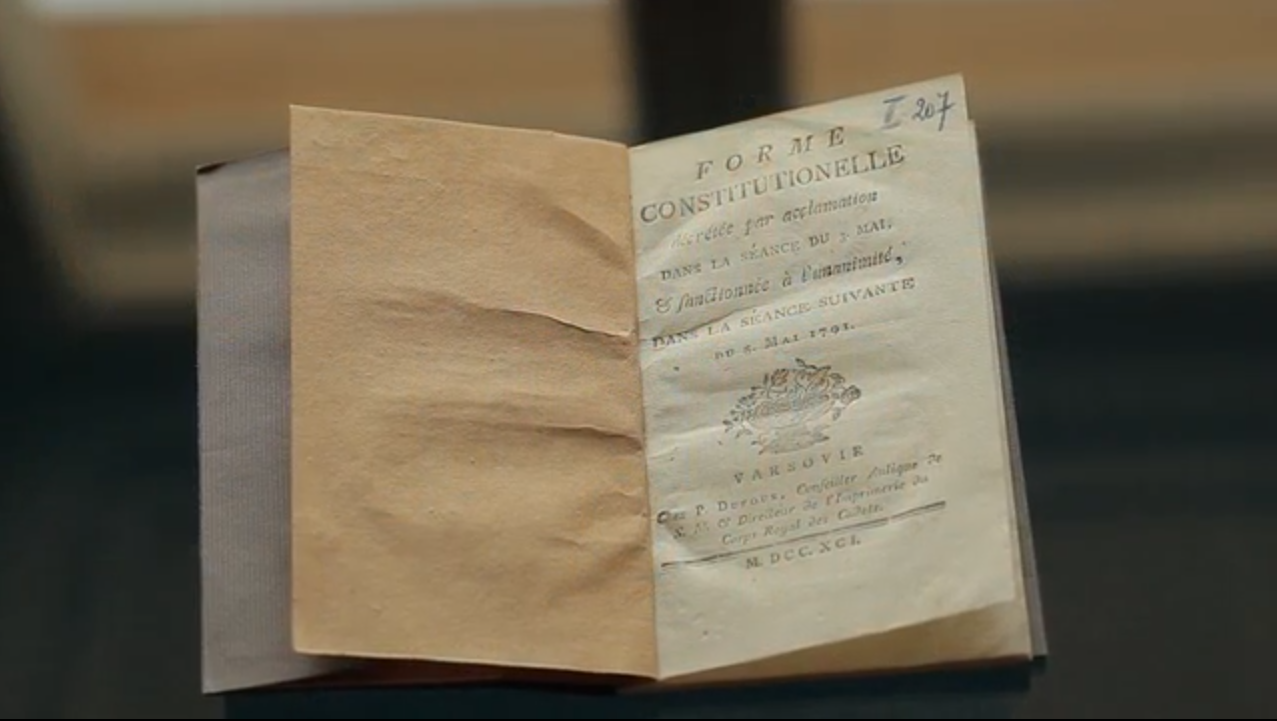 I 207
FORME
CONSTITUTIONELLE
décrétée par acclamation
DANS LA SÉANCE DU 3. MAI,
& sanctionnée à l'unanimité,
DANS LA SÉANCE SUIVANTE
DU 5. MAI 1791.
VARSOVIE
Chez P. DUFOUR, Conseiller Aulique de
S. M. & Directeur de l'Imprimerie du
Corps Royal des Cadets.
M. DCC. XCI.